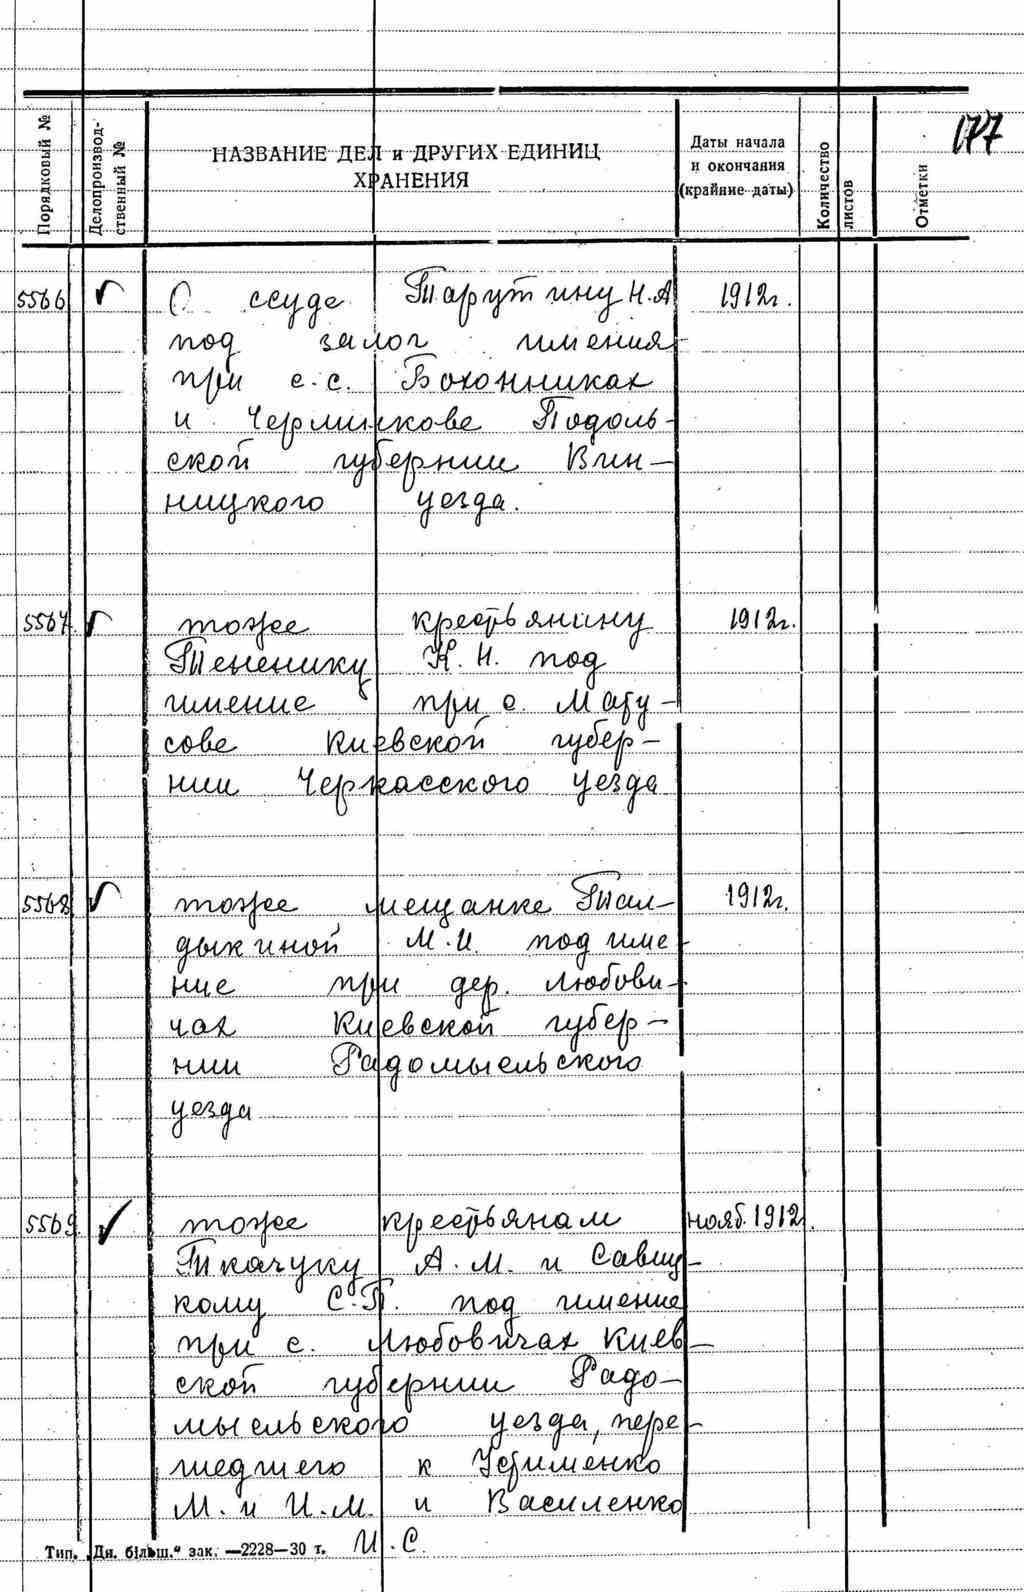 177
Порядковый №
Делопроизвод-
ственный №
НАЗВАНИЕ ДЕЛ и ДРУГИХ ЕДИНИЦ
ХРАНЕНИЯ
Даты начала
и окончания
(крайние даты)
Количество
листов
Отметки
5566 О ссуде Тарутину Н.А 1912г.
под залог имения
при с.с. Бохонниках
и Черлинкове Подоль-
ской губернии Вин-
ницкого уезда.
5567 тоже крестьянину 1912г.
Тененику К. Н. под
имение при с. Матусове
сове Киевской губер-
нии Черкасского уезда
5568 тоже мещанке Тал- 1912г.
дыкиной М.И. под име-
ние при дер. Любови-
чах Киевской губер-
нии Радомысельского
уезда
5569 тоже крестьянам нояб. 1912
Ткачуку А.М. и Савиц-
кому С.П. под имение
при с. Любовичах Киев-
ской губернии Радо-
мысельского уезда, пере-
шедшего к Устименко
М. и И.М. и Василенко
И.С.
Тип. „Дн. більш." зак. —2228—30 т.